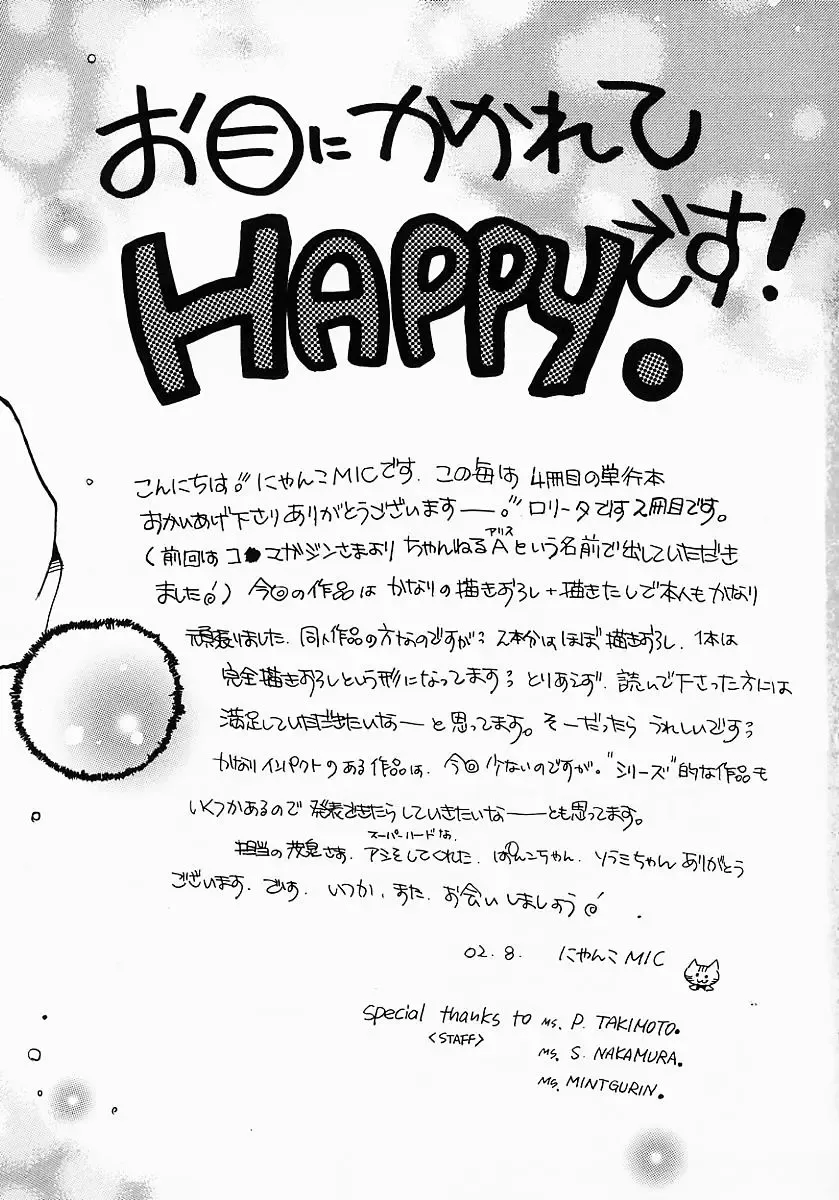 お目にかかれて
HAPPYです!
こんにちは。にゃんこMICです. この毎は 4冊目の単行本
おかいあげ下さりありがとうございますー。ロリータです2冊目です。
(前回は コ●マガジンさまより ちゃんねるAという名前で出していただき
アリス
ました) 今回の作品は かなりの描きおろし+描きたしで本人もかなり
頑張りました. 同人作品の方なのですが; 2本分はほぼ描きおろし, 1本は
完全描きおろしという形になってます; とりあえず. 読んで下さった方には
満足していただきたいなーと思ってます。そーだったら うれしいです;
かなりインパクトのある作品は, 今回少ないのですが。"シリーズ"的な作品も
いくつかあるので 発表できたらしていきたいなーとも思ってます。
スーパーハードな
担当の さま. アシをしてくれた. ぱんこちゃん. ソラミちゃん ありがとう
ございます. です. いつか, また, お会いしましょう
02.8. にゃんこMIC
special thanks to MS. P. TAKIMOTO.
<STAFF>
MS. S. NAKAMURA.
MS. MINTGURIN.